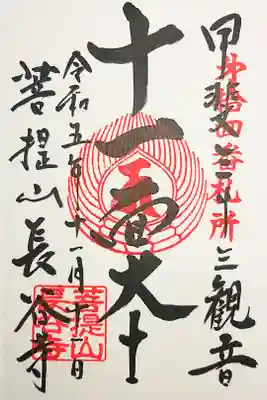 甲斐三十三観音
四番札所
十一面大士
令和五年十一月十一日
菩提山長谷寺
菩提山
長谷寺